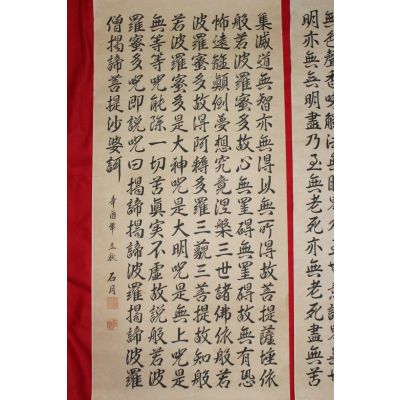 無色聲香味觸法無眼界乃至無意識界無無
明亦無無明盡乃至無老死亦無老死盡無苦
集滅道無智亦無得以無所得故菩提薩埵依
般若波羅蜜多故心無罣礙無罣礙故無有恐
怖遠離顛倒夢想究竟涅槃三世諸佛依般若
波羅蜜多故得阿耨多羅三藐三菩提故知般
若波羅蜜多是大神呪是大明呪是無上呪是
無等等呪能除一切苦真實不虛故說般若波
羅蜜多呪即說呪曰揭諦揭諦波羅揭諦波羅
僧揭諦菩提沙婆訶
辛酉年立秋 石月